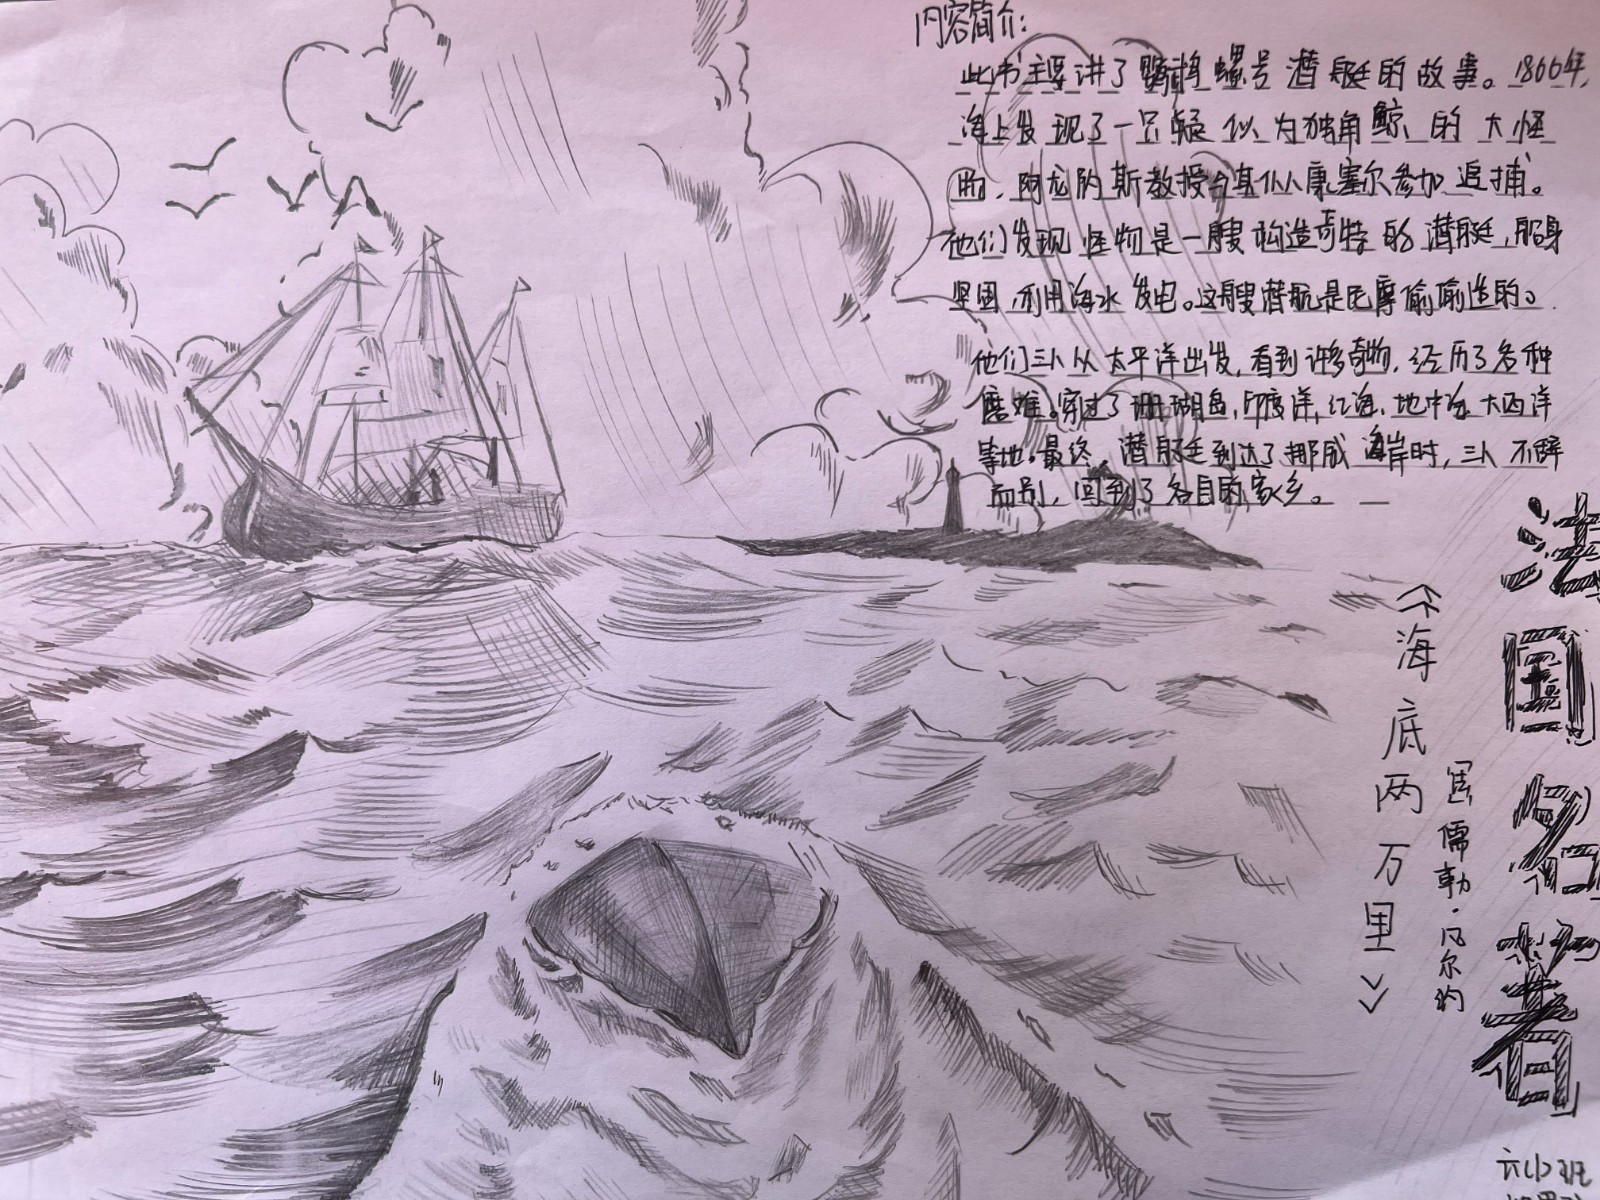 内容简介:
此书主要讲了鹦鹉螺号潜艇的故事。1866年,
海上发现了一只疑似为独角鲸的大怪
物,阿龙纳斯教授合其仆人康塞尔参加追捕。
他们发现怪物是一艘构造奇特的潜艇,船身
坚固,利用海水发电。这艘潜航是尼摩偷偷造的。
他们三人从太平洋出发,看到许多奇物,经历了各种
磨难。穿过了珊瑚岛,印度洋,红海,地中海,大西洋
等地。最终,潜艇到达了挪威海岸时,三人不辞
而别,回到了各自的家乡。
法国名著
《海底两万里》
儒勒·凡尔纳
班